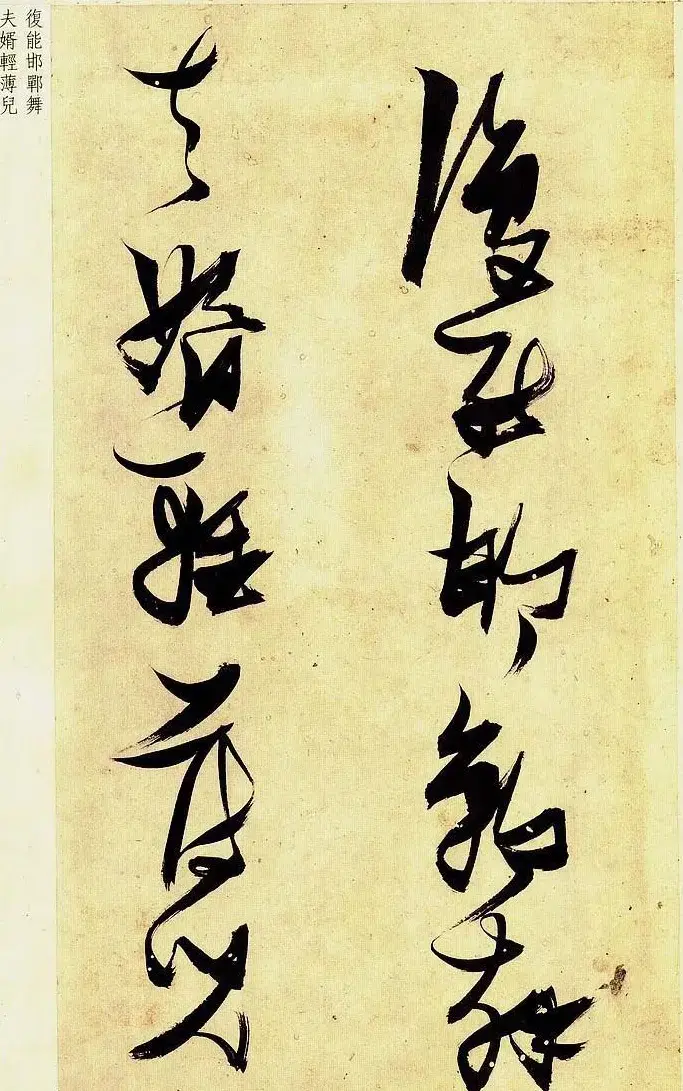 復能邯鄲舞
夫婿輕薄兒
復能邯鄲舞
夫婿輕薄兒